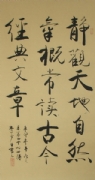 静觀天地自然
氣概常读古今
經典文章